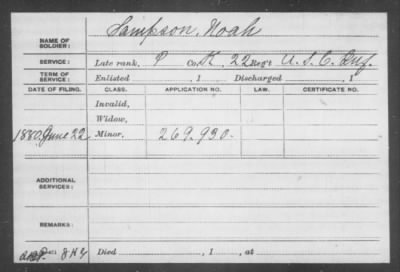 NAME OF SOLDIER: Sampson, Noah
SERVICE: Late rank, P Co. K, 22 Reg't U.S.C. Inf.
TERM OF SERVICE: Enlisted , 1 Discharged , 1
DATE OF FILING. CLASS. APPLICATION NO. LAW. CERTIFICATE NO.
Invalid,
Widow,
1880, June 22 Minor, 269.930.
ADDITIONAL SERVICES:
REMARKS:
Died , 1 , at